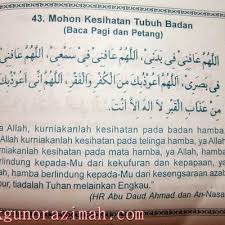 43. Mohon Kesihatan Tubuh Badan
(Baca Pagi dan Petang)
اَللّٰهُمَّ عَافِنِيْ فِيْ بَدَنِيْ، اَللّٰهُمَّ عَافِنِيْ فِيْ سَمْعِيْ، اَللّٰهُمَّ عَافِنِيْ
فِيْ بَصَرِيْ، اَللّٰهُمَّ إِنِّيْ أَعُوْذُبِكَ مِنَ الْكُفْرِ وَالْفَقْرِ، اَللّٰهُمَّ إِنِّيْ أَعُوْذُبِكَ
مِنْ عَذَابِ الْقَبْرِ لَا إِلٰهَ إِلَّا أَنْتَ.
ya Allah, kurniakanlah kesihatan pada badan hamba, ya
Allah kurniakanlah kesihatan pada telinga hamba, ya Allah
kurniakanlah kesihatan pada mata hamba, ya Allah, hamba
berlindung kepada-Mu dari kekufuran dan kepapaan, ya
hamba berlindung kepada-Mu dari kesengsaraan azab
tiadalah Tuhan melainkan Engkau."
(HR Abu Daud Ahmad dan An-Nasa
kgunorazimah.com